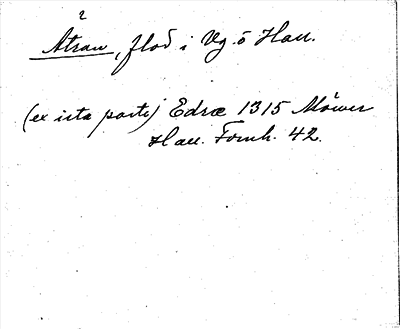 2
Ätran, flod i Vg. o Hall.
(ex ista parte) Edræ 1315 Möwer
Hall. Fornh. 42.